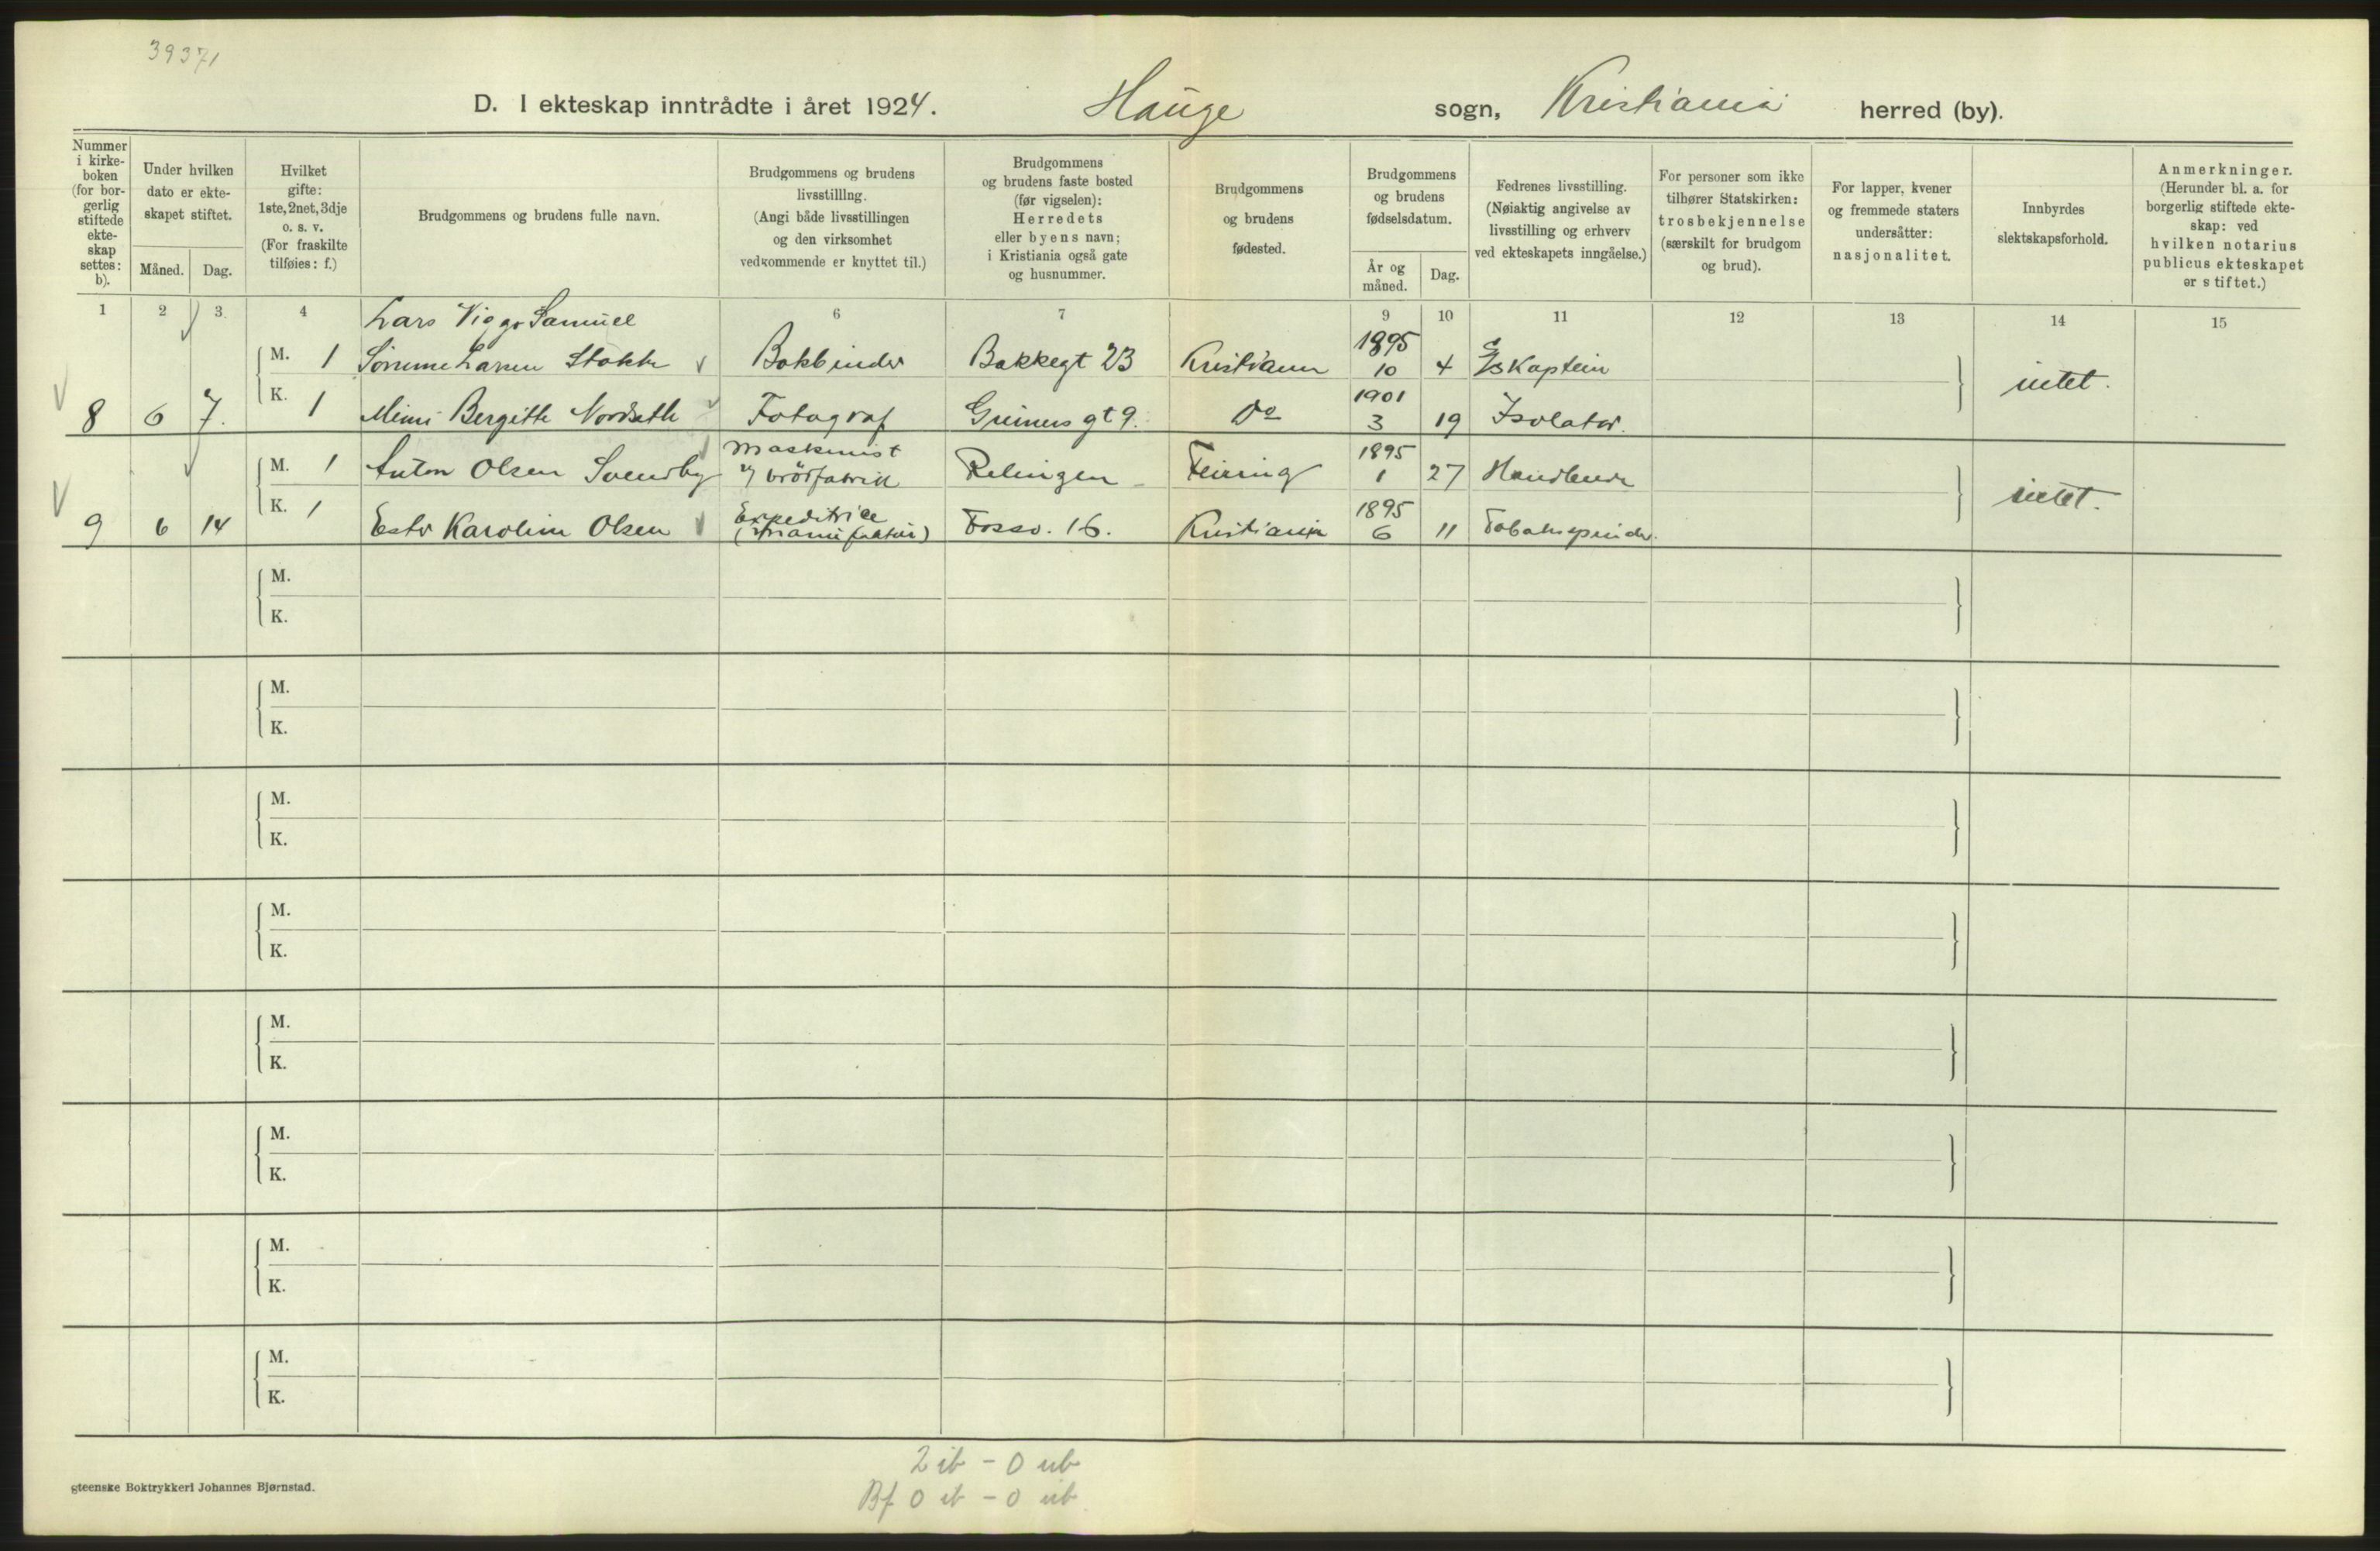 39371
D. I ekteskap inntrådte i året 1924. Hauge sogn, Kristiania herred (by).
Nummer i kirke-boken (for bor-gerlig stiftede ekte-skap settes: b).
Under hvilken dato er ekte-skapet stiftet.
Måned. Dag.
Hvilket gifte: 1ste, 2net, 3dje o. s. v. (For fraskilte tilføies: f.)
Brudgommens og brudens fulle navn.
Brudgommens og brudens livsstilling. (Angi både livsstillingen og den virksomhet vedkommende er knyttet til.)
Brudgommens og brudens faste bosted (før vigselen): Herredets eller byens navn; i Kristiania også gate og husnummer.
Brudgommens og brudens fødested.
Brudgommens og brudens fødselsdatum.
År og måned. Dag.
Fedrenes livsstilling. (Nøiaktig angivelse av livsstilling og erhverv ved ekteskapets inngåelse.)
For personer som ikke tilhører Statskirken: trosbekjennelse (særskilt for brudgom og brud).
For lapper, kvener og fremmede staters undersåtter: nasjonalitet.
Innbyrdes slektskapsforhold.
Anmerkninger. (Herunder bl. a. for borgerlig stiftede ekte-skap: ved hvilken notarius publicus ekteskapet er stiftet.)
1 2 3 4 6 7 9 10 11 12 13 14 15
Lars Viggo Samuel
M. 1 Sömme Larsen Stokke Bokbinder Bakkegt 23 Kristiania 1895 10 4 Kaptein
8 6 7. K. 1 Mimi Bergitte Nordseth Fotograf Griiners gt 9. Do 1901 3 19 Isolatør. intet.
M. 1 Anton Olsen Svendby Maskinist v/ brödfabrik Relingen Feiring 1895 1 27 Handlende
9 6 14 K. 1 Ester Karoline Olsen Expeditrice (i manufaktur) Fossv. 16. Kristiania 1895 6 11 Tobakspinder. intet.
M.
K.
M.
K.
M.
K.
M.
K.
M.
K.
M.
K.
M.
K.
M.
K.
2 ib - 0 ub
Bf 0 ib - 0 ub
gteenske Boktrykkeri Johannes Bjørnstad.